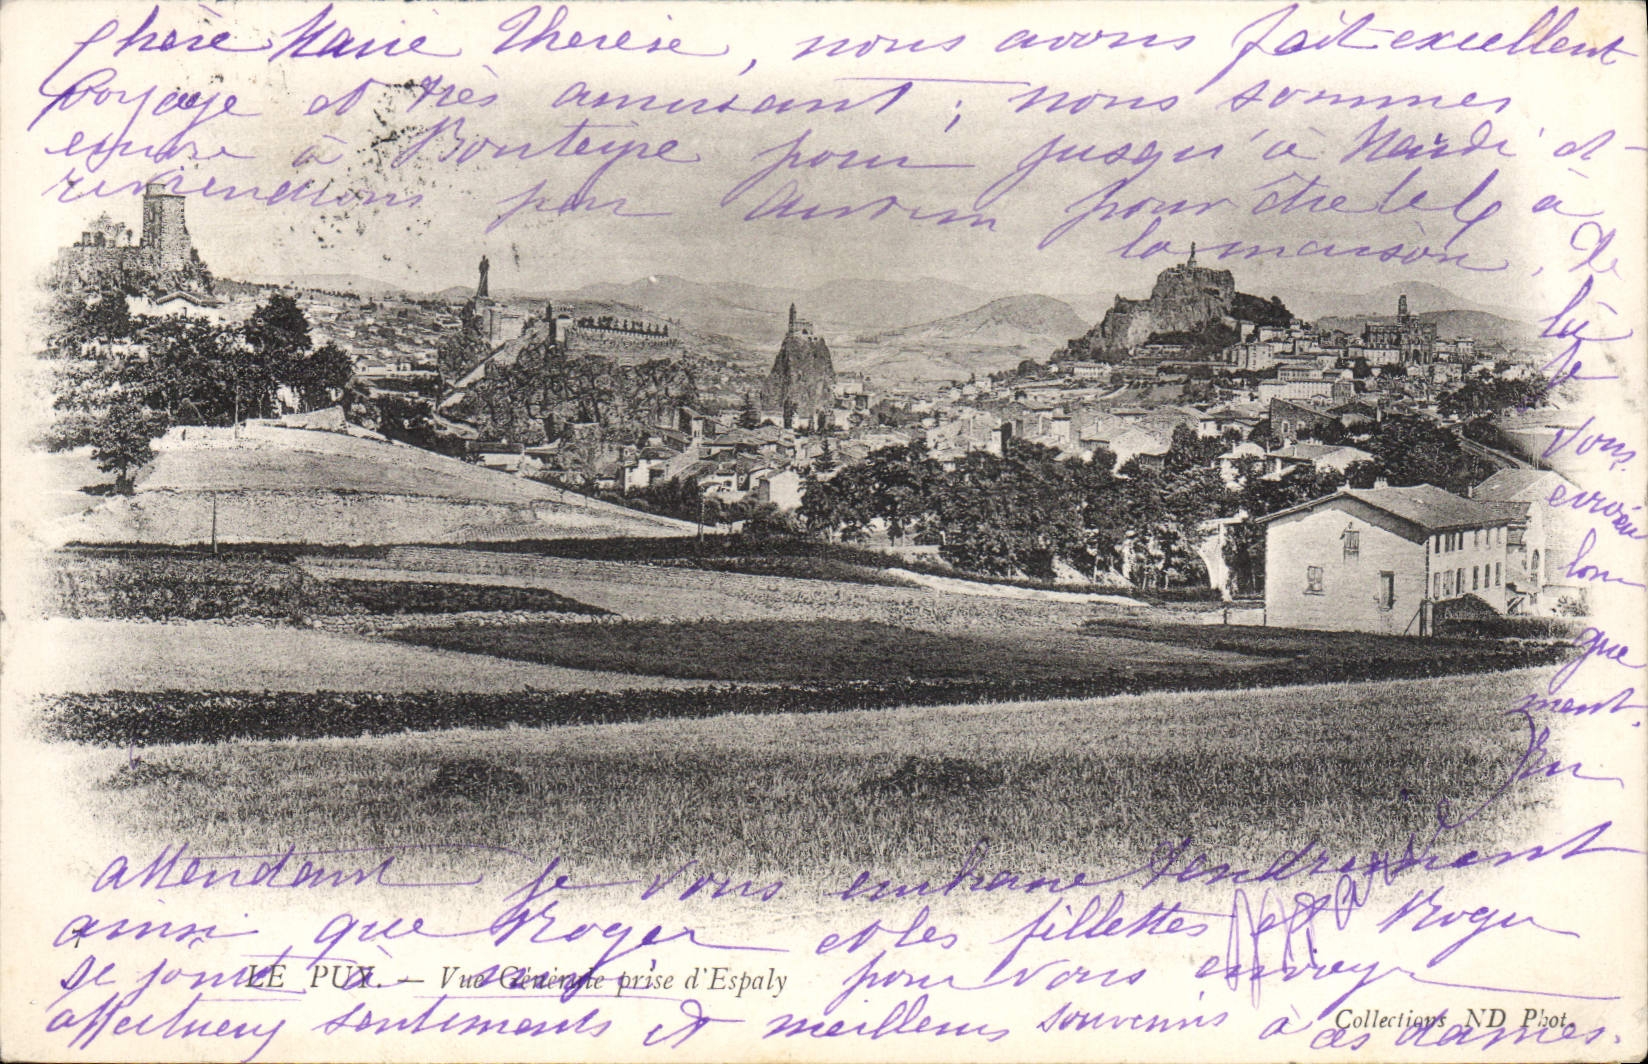 Chère Marie Thérèse, nous avons fait excellent
voyage et très amusant; nous sommes
encore à pour jusqu'à Mardi et
reviendrons par pour être le à
la maison. De
là
je
vous
écrirai
lon
gue
ment.
En
attendant je vous embrasse tendrement
ainsi que Roger et les fillettes et Roger
se joint à pour vous envoyer
affectueux sentiments et meilleurs souvenirs à
ces dames.
LE PUY. — Vue Générale prise d'Espaly
Collections ND Phot.